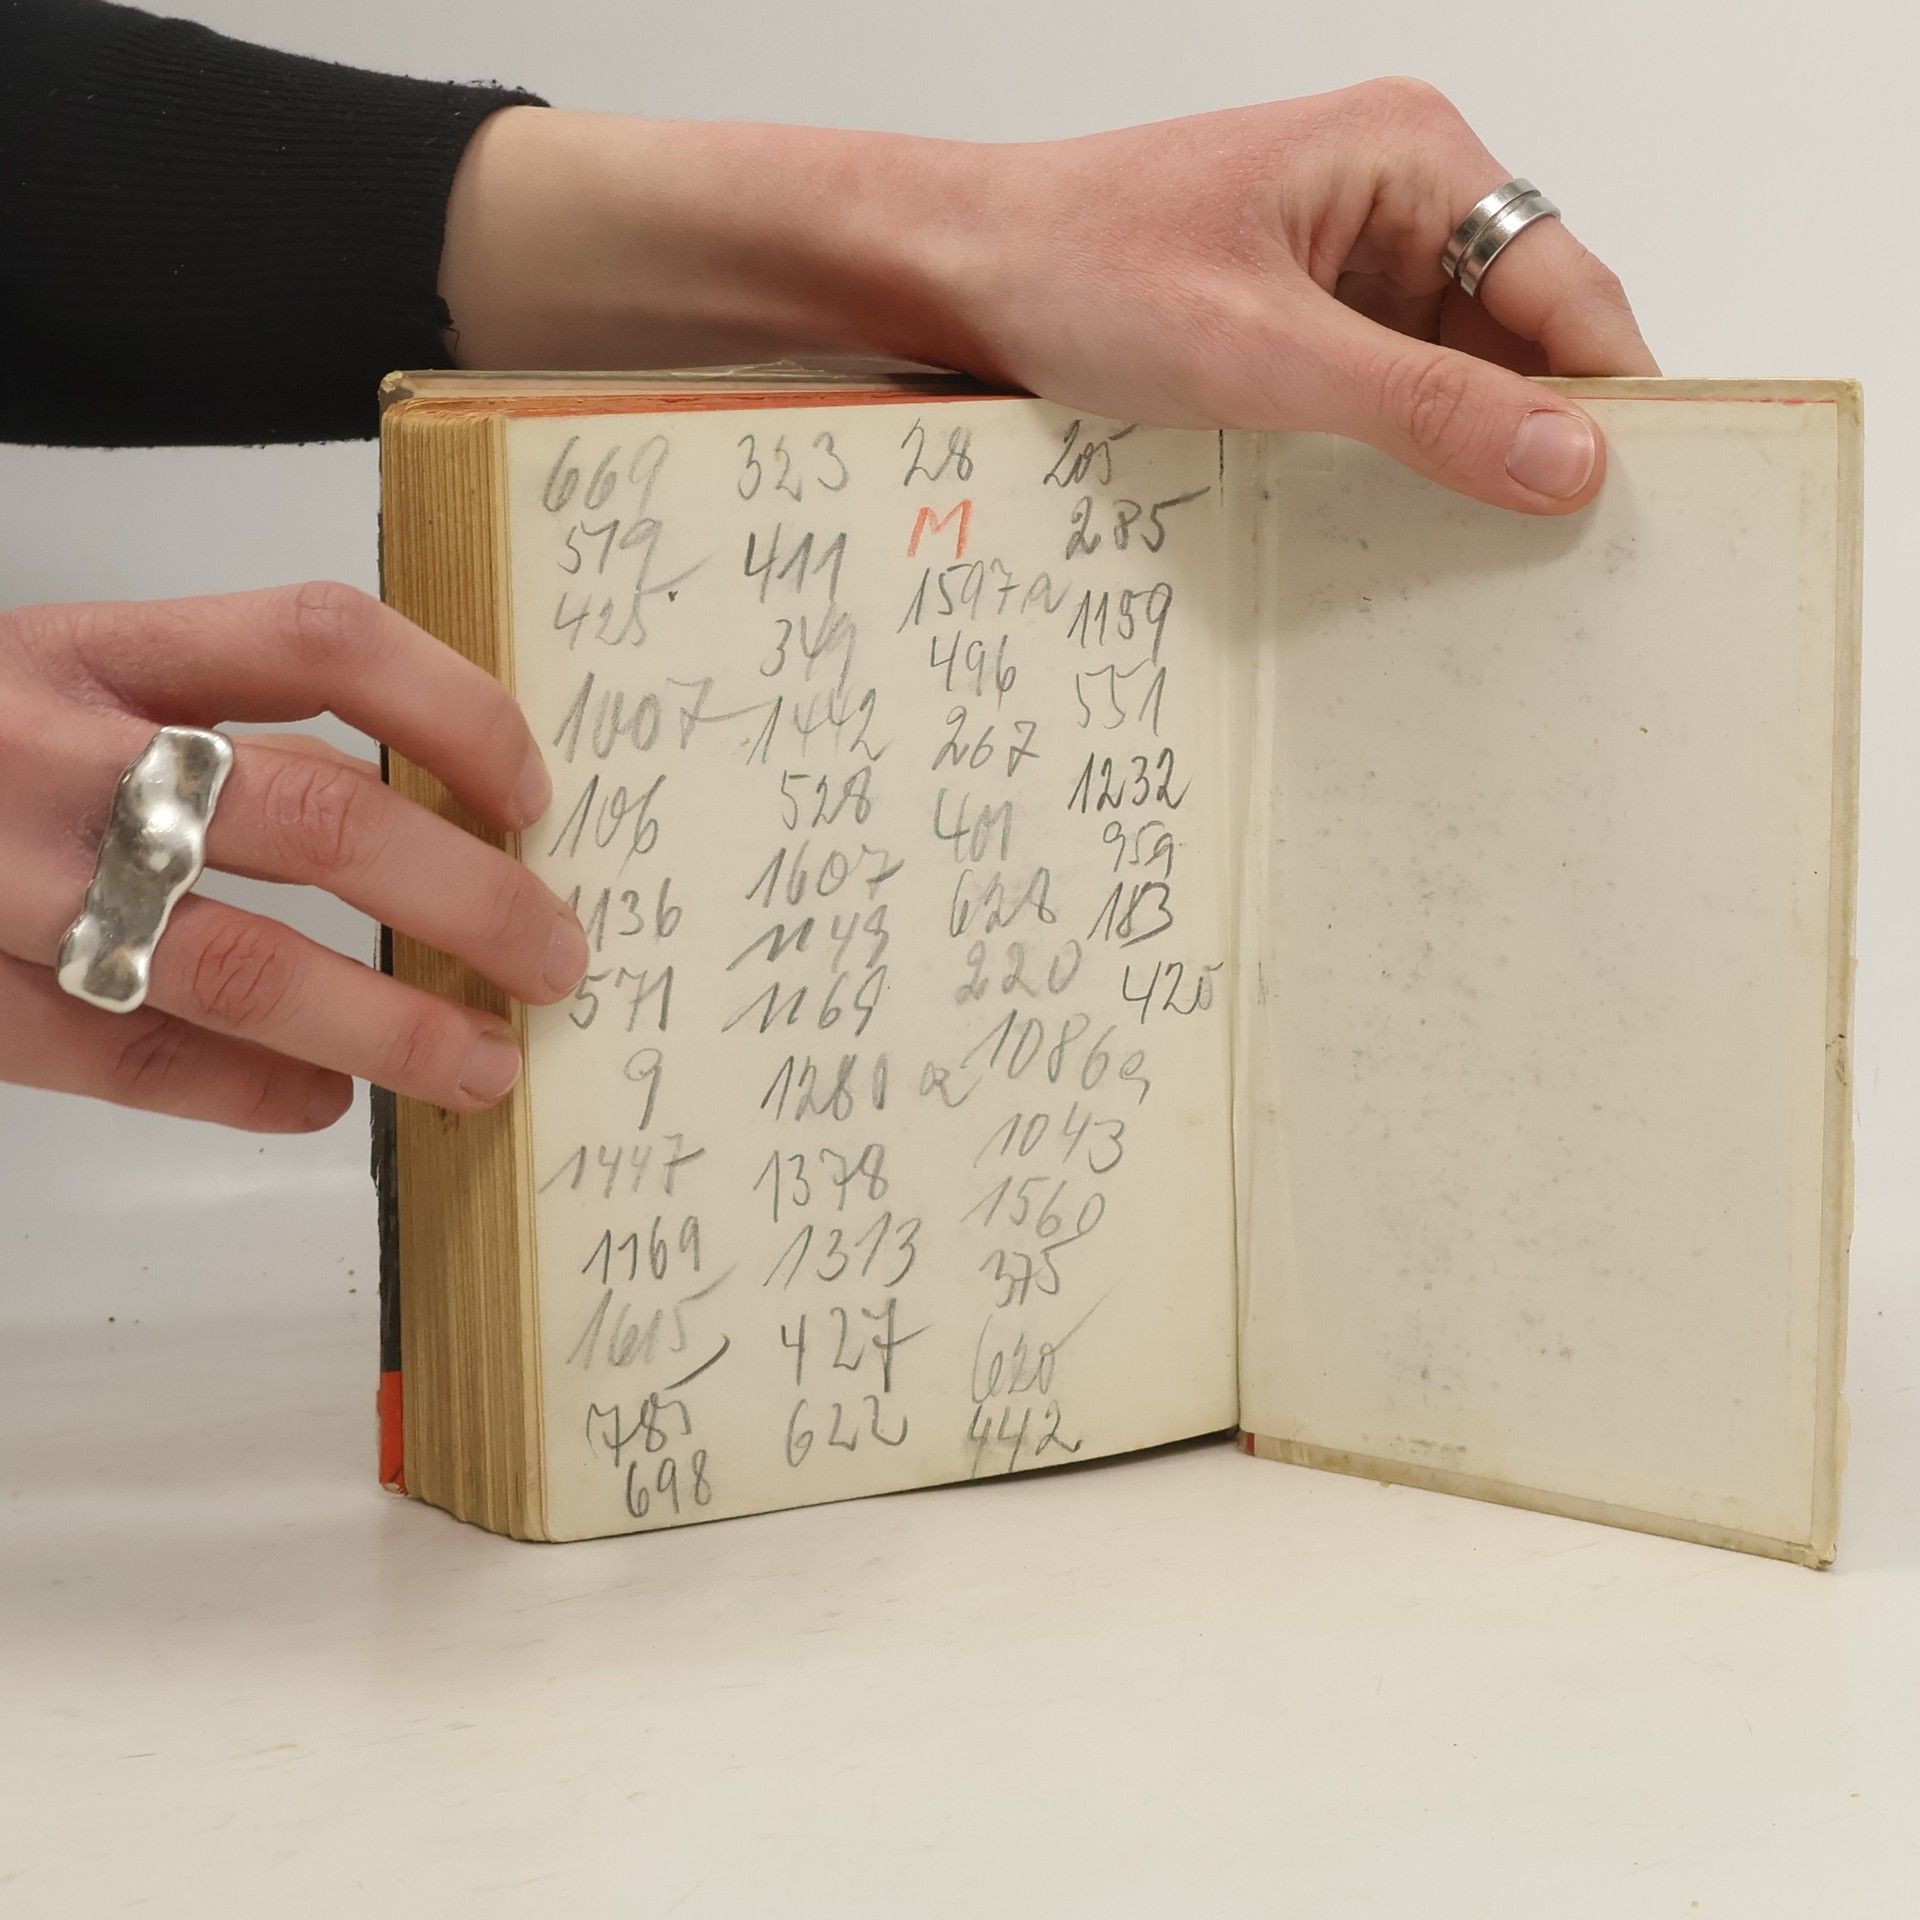 669 323 28 205
579 411 M 285
425 349 1597a 1159
1007 1442 496 551
106 528 267 1232
1136 1607 401 959
571 1149 628 183
9 1169 220 425
1447 1280 a 1086a
1169 1378 1043
1615 1313 1560
785 427 375
698 622 620
442